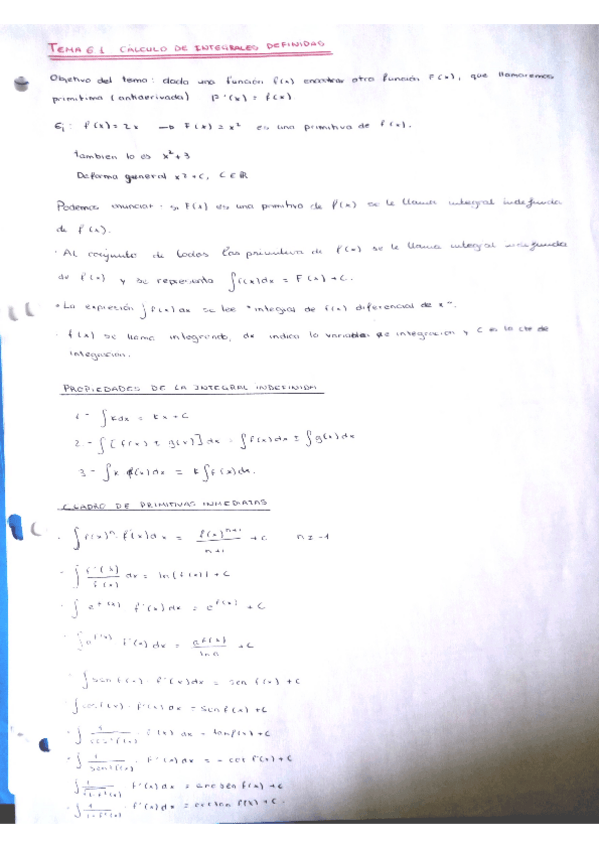 TEMA 6.1 CÁLCULO DE INTEGRALES DEFINIDAS
Objetivo del tema: dada una función f(x) encontrar otra función F(x), que llamaremos
primitiva (antiderivada) F'(x) = f(x)
Ej: f(x) = 2x → F(x) = x² es una primitiva de f(x).
tambien lo es x² + 3
De forma general x² + C, C ∈ ℝ
Podemos enunciar: si F(x) es una primitiva de f(x) se le llama integral indefinida
de f(x).
· Al conjunto de todas las primitivas de f(x) se le llama integral indefinida
de f(x) y se representa ∫f(x)dx = F(x) + C.
• La expresión ∫f(x)dx se lee "integral de f(x) diferencial de x".
· f(x) se llama integrando, dx indica la variable de integracion y C es la cte de
integracion.
PROPIEDADES DE LA INTEGRAL INDEFINIDA
1 - ∫kdx = kx + C
2 - ∫[f(x) ± g(x)]dx = ∫f(x)dx ± ∫g(x)dx
3 - ∫k f(x)dx = k∫f(x)dx.
CUADRO DE PRIMITIVAS INMEDIATAS
· ∫f(x)ⁿ · f'(x)dx = f(x)ⁿ⁺¹ / n+1 + C n ≠ -1
· ∫ f'(x) / f(x) dx = ln(f(x)) + C
· ∫ e^f(x) f'(x)dx = e^f(x) + C
· ∫a^f(x) f'(x)dx = a^f(x) / ln a + C
· ∫sen f(x) · f'(x)dx = sen f(x) + C
∫cos f(x) · f'(x)dx = sen f(x) + C
· ∫ 1 / cos² f(x) · f'(x) dx = tan f(x) + C
· ∫ 1 / sen² f(x) · f'(x)dx = - cot f(x) + C
∫ f'(x)dx = arc sen f(x) + C
· ∫ f'(x)dx = arctan f(x) + C.